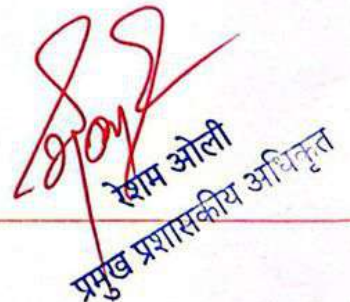 रेशम ओली
प्रमुख प्रशासकीय अधिकृत